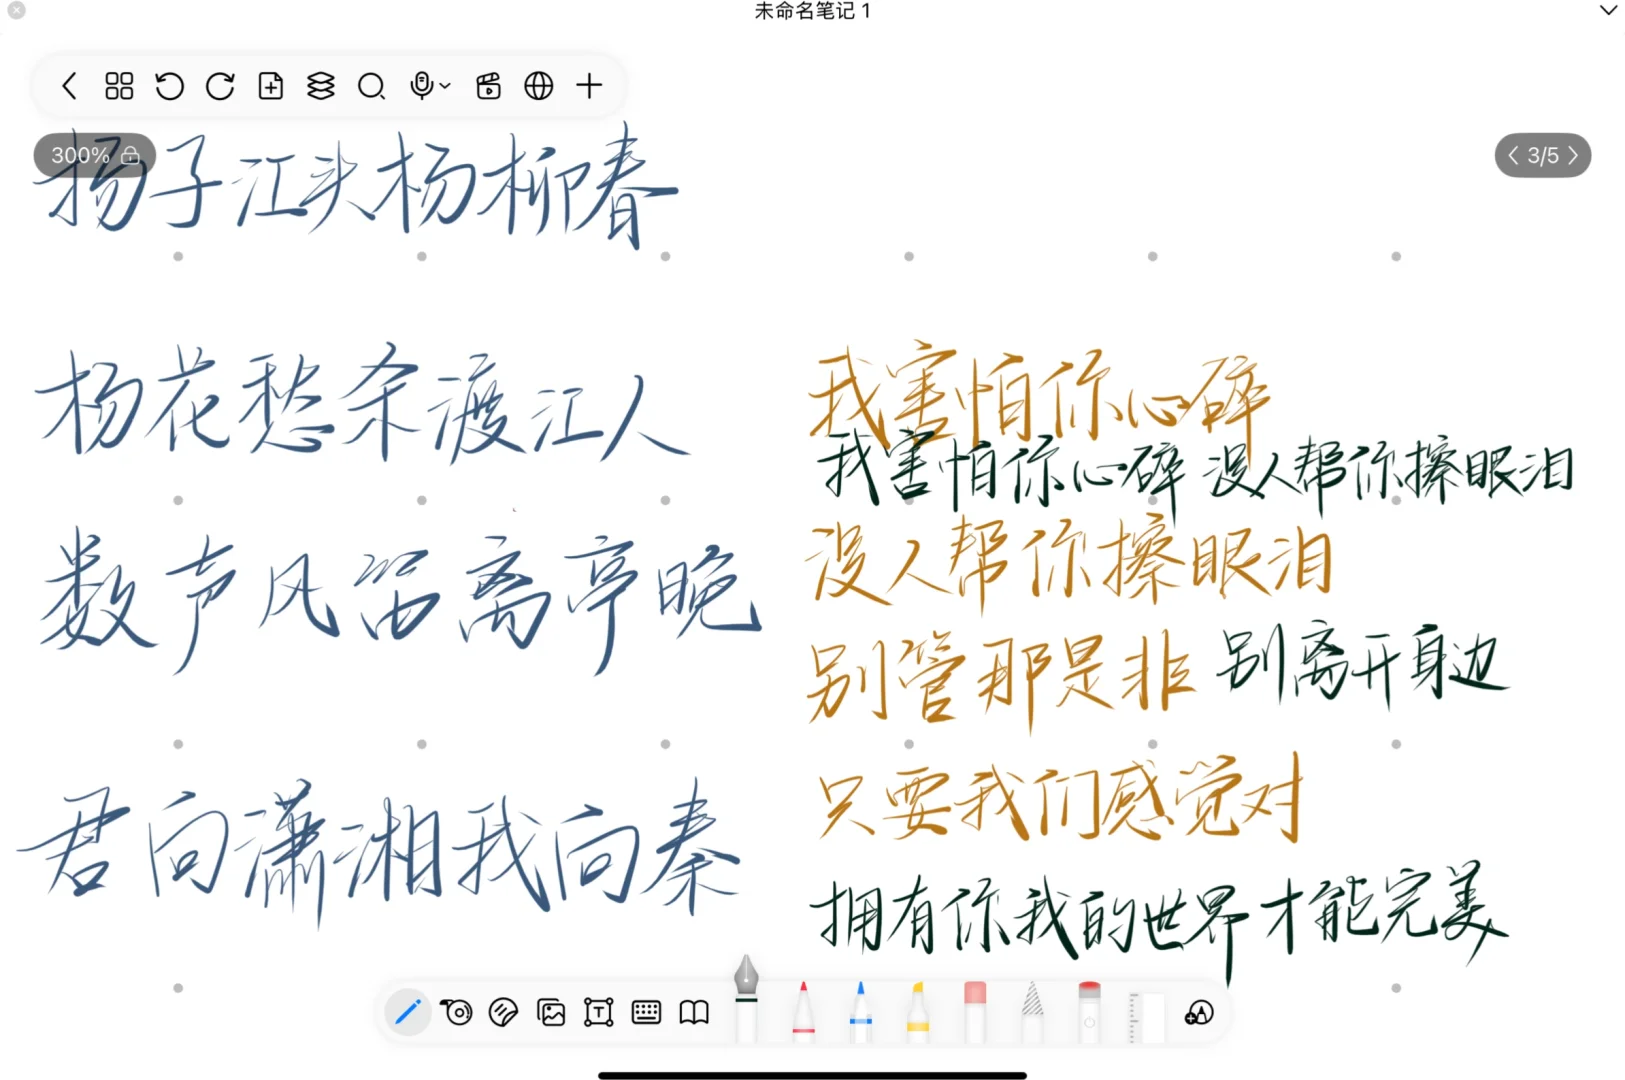 未命名笔记 1
300%
3/5
扬子江头杨柳春
杨花愁余渡江人
数声风笛离亭晚
君向潇湘我向秦
我害怕你心碎
我害怕你心碎 没人帮你擦眼泪
没人帮你擦眼泪
别管那是非 别离开身边
只要我们感觉对
拥有你我的世界才能完美